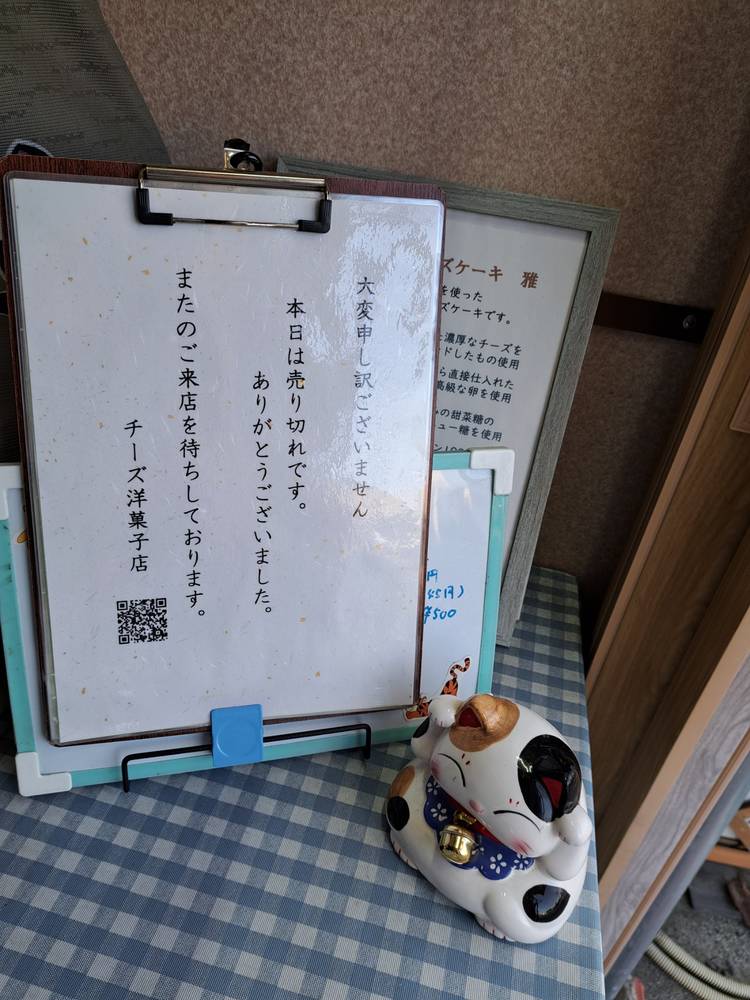 大変申し訳ございません
本日は売り切れです。
ありがとうございました。
またのご来店を待ちしております。
チーズ洋菓子店
ズケーキ 雅
を使った
ズケーキです。
濃厚なチーズを
ドしたもの使用
ら直接仕入れた
高級な卵を使用
の甜菜糖の
ュー糖を使用
円
45円)
¥500